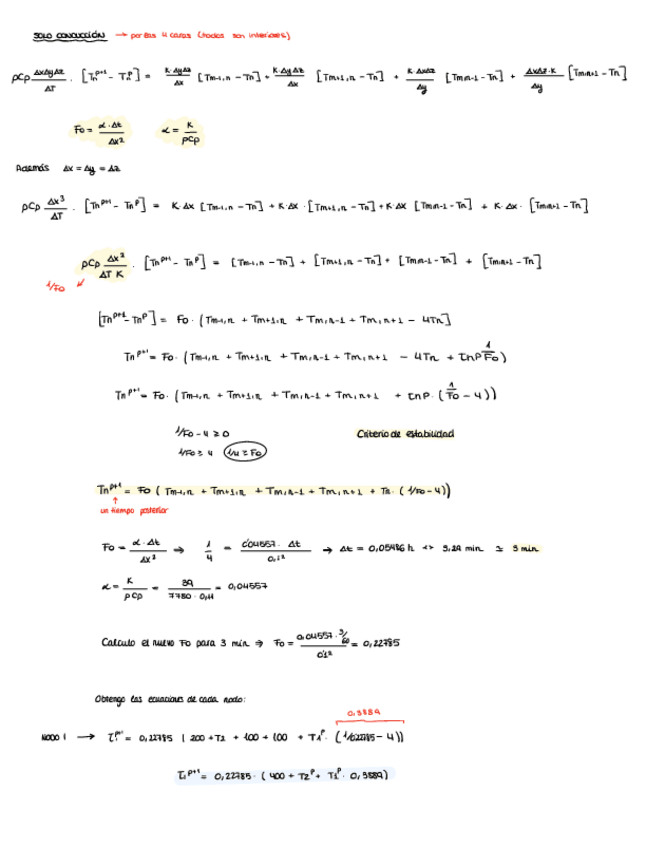 SOLO CONDUCCIÓN → por las 4 caras (todos son interiores)
ρCp ΔxΔyΔz/ΔT · [Tn^p+1 - Tn^p] = K·ΔyΔz/Δx [Tm-1,n - Tn] + K·ΔyΔz/Δx [Tm+1,n - Tn] + K·ΔxΔz/Δy [Tm,n-1 - Tn] + ΔxΔz·K/Δy [Tm,n+1 - Tn]
Fo = α·Δt/Δx² α = K/ρCp
Además Δx = Δy = Δz
ρCp Δx³/ΔT · [Tn^p+1 - Tn^p] = K·Δx [Tm-1,n - Tn] + K·Δx · [Tm+1,n - Tn] + K·Δx [Tm,n-1 - Tn] + K·Δx · [Tm,n+1 - Tn]
ρCp Δx²/ΔT K · [Tn^p+1 - Tn^p] = [Tm-1,n - Tn] + [Tm+1,n - Tn] + [Tm,n-1 - Tn] + [Tm,n+1 - Tn]
1/Fo
[Tn^p+1 - Tn^p] = Fo · (Tm-1,n + Tm+1,n + Tm,n-1 + Tm,n+1 - 4Tn]
Tn^p+1 = Fo · (Tm-1,n + Tm+1,n + Tm,n-1 + Tm,n+1 - 4Tn + Tn^p 1/Fo)
Tn^p+1 = Fo · (Tm-1,n + Tm+1,n + Tm,n-1 + Tm,n+1 + Tn^p · (1/Fo - 4))
1/Fo - 4 ≥ 0 Criterio de estabilidad
1/Fo ≥ 4 1/4 ≥ Fo
Tn^p+1 = Fo (Tm-1,n + Tm+1,n + Tm,n-1 + Tm,n+1 + Tn · (1/Fo - 4))
un tiempo posterior
Fo = α·Δt/Δx² ⇒ 1/4 = 0'04557 · Δt/0,1² → Δt = 0,05486 h ↔ 3,29 min ≃ 3 min
α = K/ρCp = 39/7780·0,11 = 0,04557
Calculo el nuevo Fo para 3 min ⇒ Fo = 0,04557 · 3/60/0'1² = 0,22785
Obtengo las ecuaciones de cada nodo:
0,3889
NODO 1 → T1^p+1 = 0,22785 (200 + T2 + 100 + 100 + T1^p · (1/0,22785 - 4))
T1^p+1 = 0,22785 · (400 + T2^p + T1^p · 0,3889)